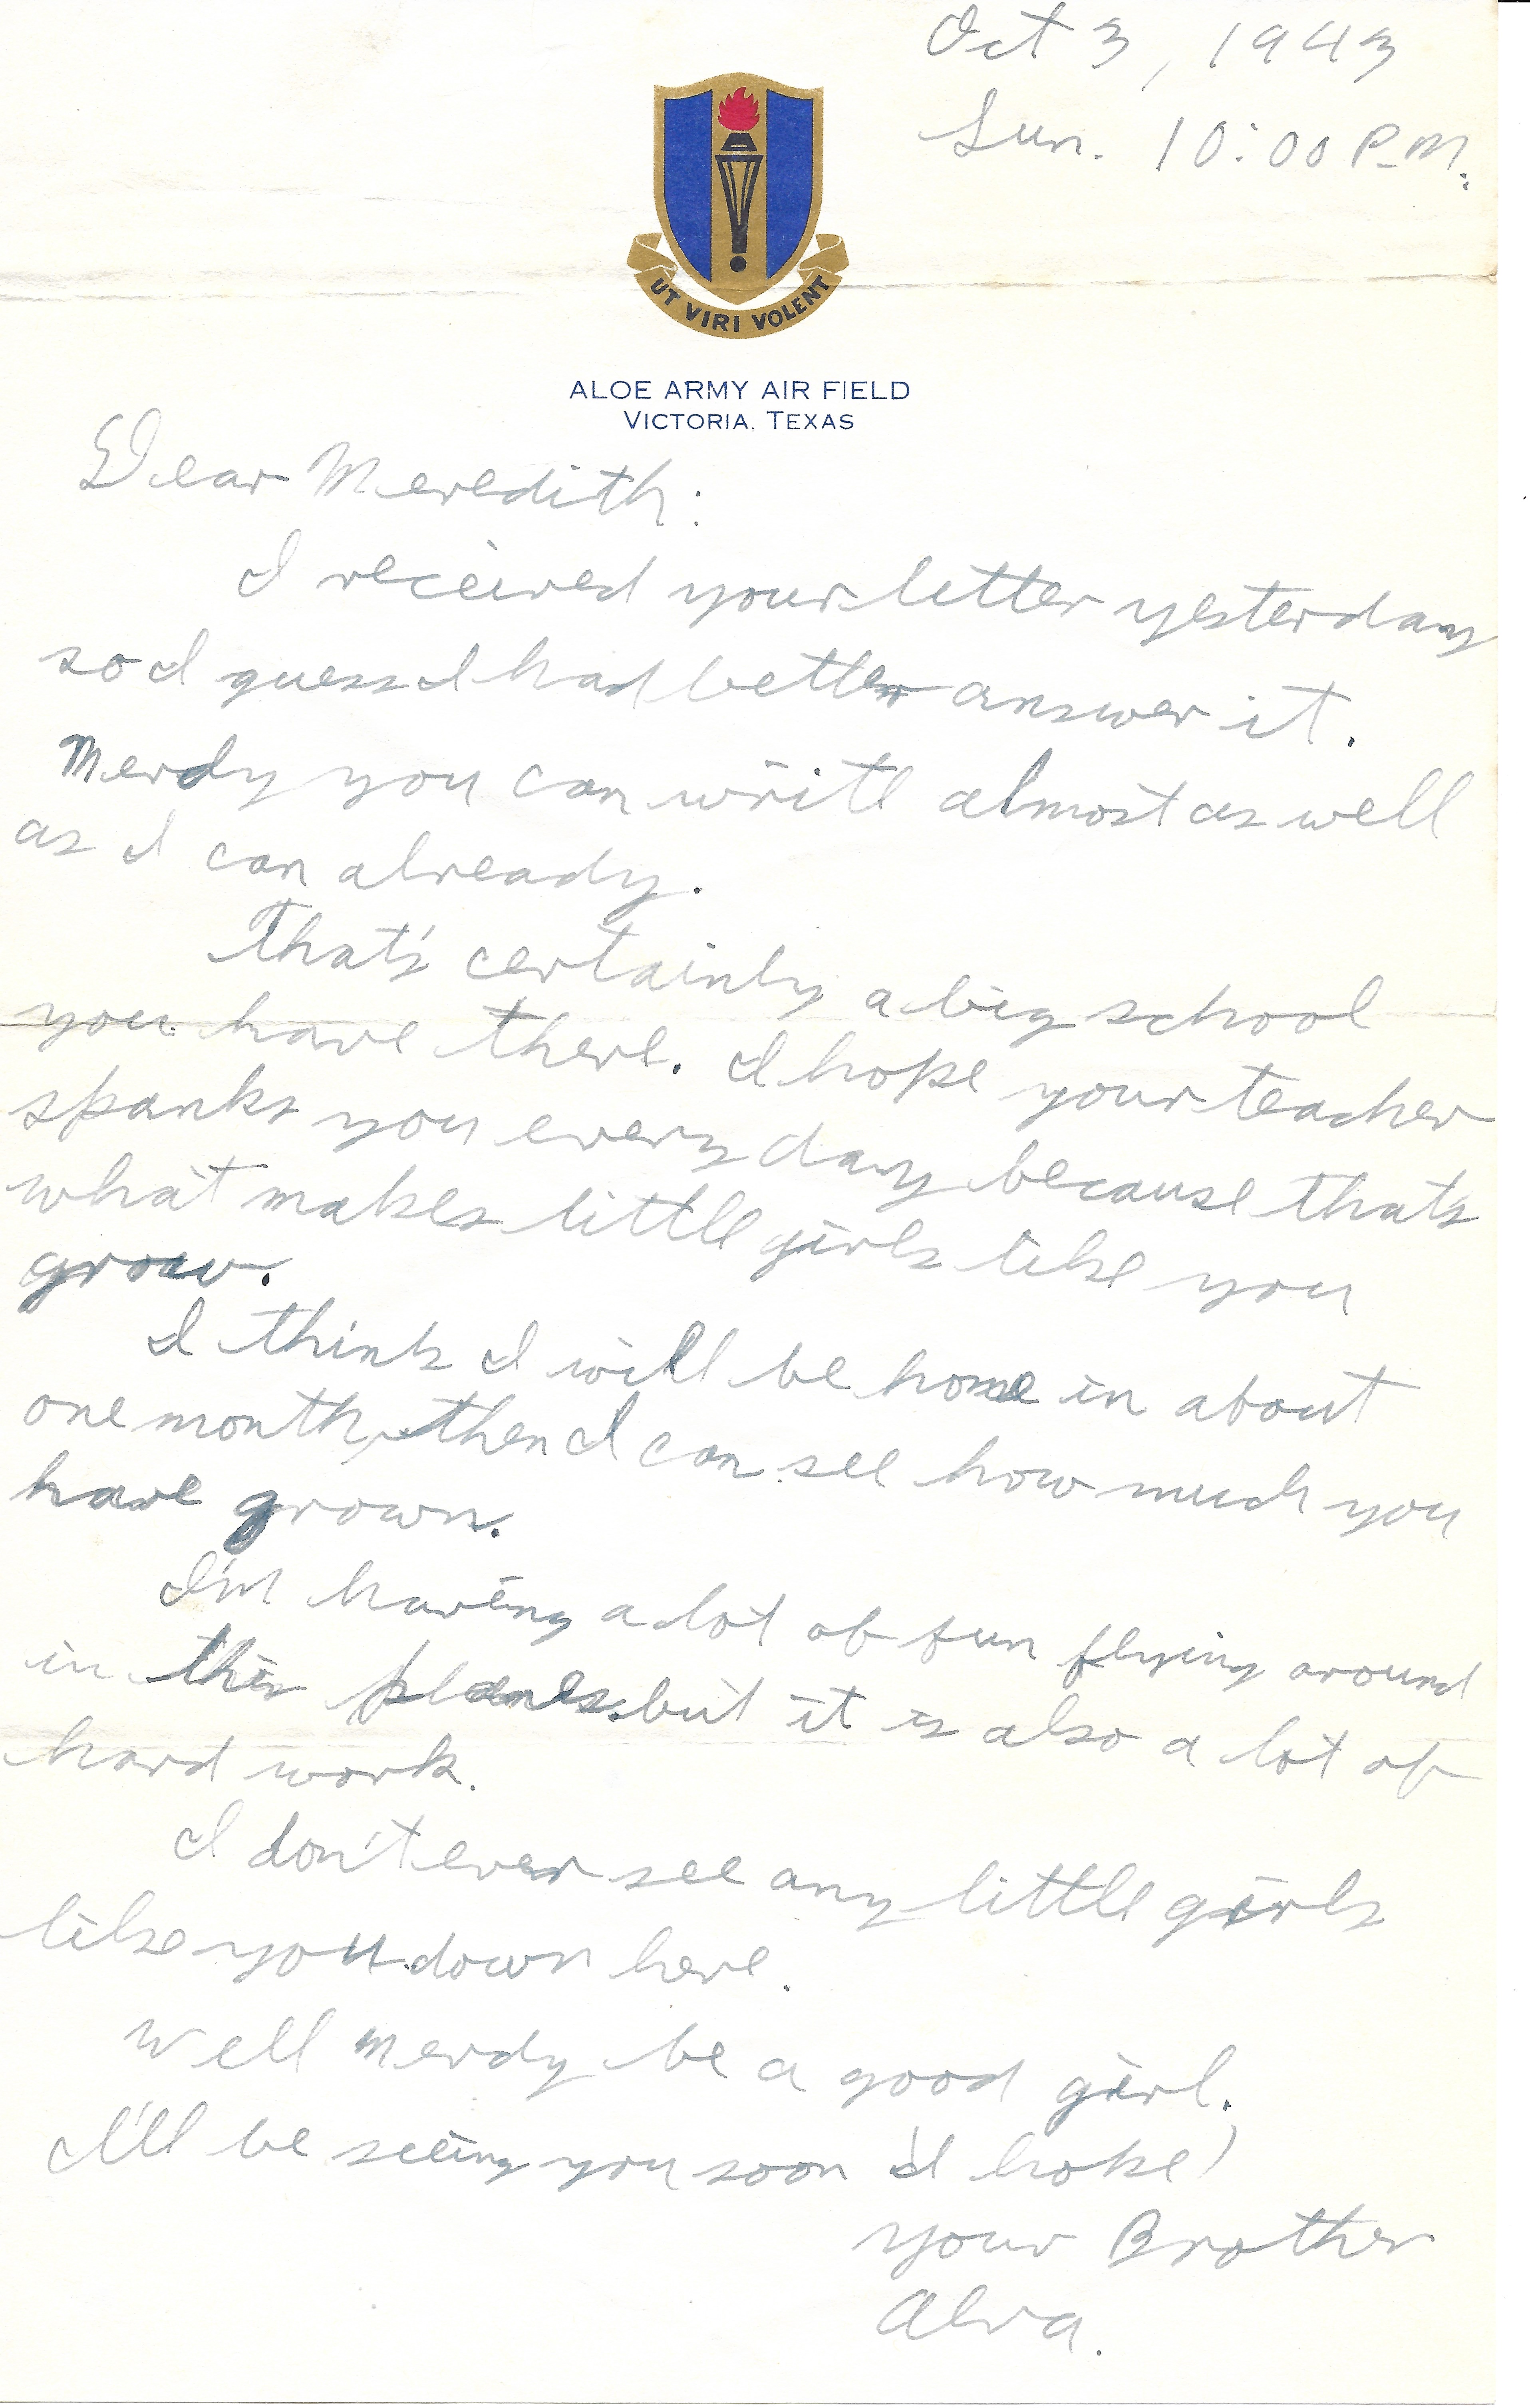 Oct 3, 1943
Sun. 10:00 P.M.
UT VIRI VOLENT
ALOE ARMY AIR FIELD
VICTORIA, TEXAS
Dear Meredith:
I received your letter yesterday
so I guess I had better answer it.
Merdy you can write almost as well
as I can already.
That's certainly a big school
you have there. I hope your teacher
spanks you every day because that's
what makes little girls like you
grow.
I think I will be home in about
one month, then I can see how much you
have grown.
I'm having a lot of fun flying around
in this planes but it is also a lot of
hard work.
I don't ever see any little girls
like you down here.
Well Merdy be a good girl.
I'll be seeing you soon (I hope)
Your Brother
Alva.